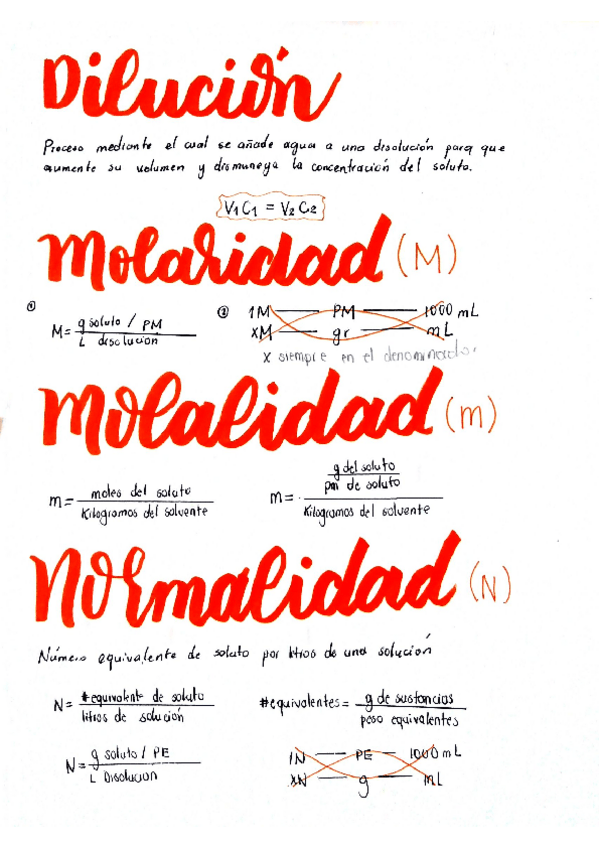 Dilución
Proceso mediante el cual se añade agua a una disolución para que
aumente su volumen y dismuneya la concentración del soluto.
V1 C1 = V2 C2
Molaridad (M)
① M = g soluto / PM
L disolución
② 1M — PM — 1000 mL
XM — gr — mL
X siempre en el denominador.
Molalidad (m)
m = moles del soluto
Kilogramos del solvente
m = g del soluto
pm de soluto
Kilogramos del solvente
Normalidad (N)
Número equivalente de soluto por litros de una solución
N = #equivalente de soluto
litros de solución
#equivalentes = g de sustancias
peso equivalentes
N = g soluto / PE
L Disolucion
1N — PE — 1000 mL
XN — g — mL